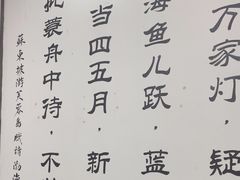 万家灯，疑
海鱼儿跃，蓝
当四五月，新
蓑舟中待，不
苏东坡游芙蓉岛赋诗